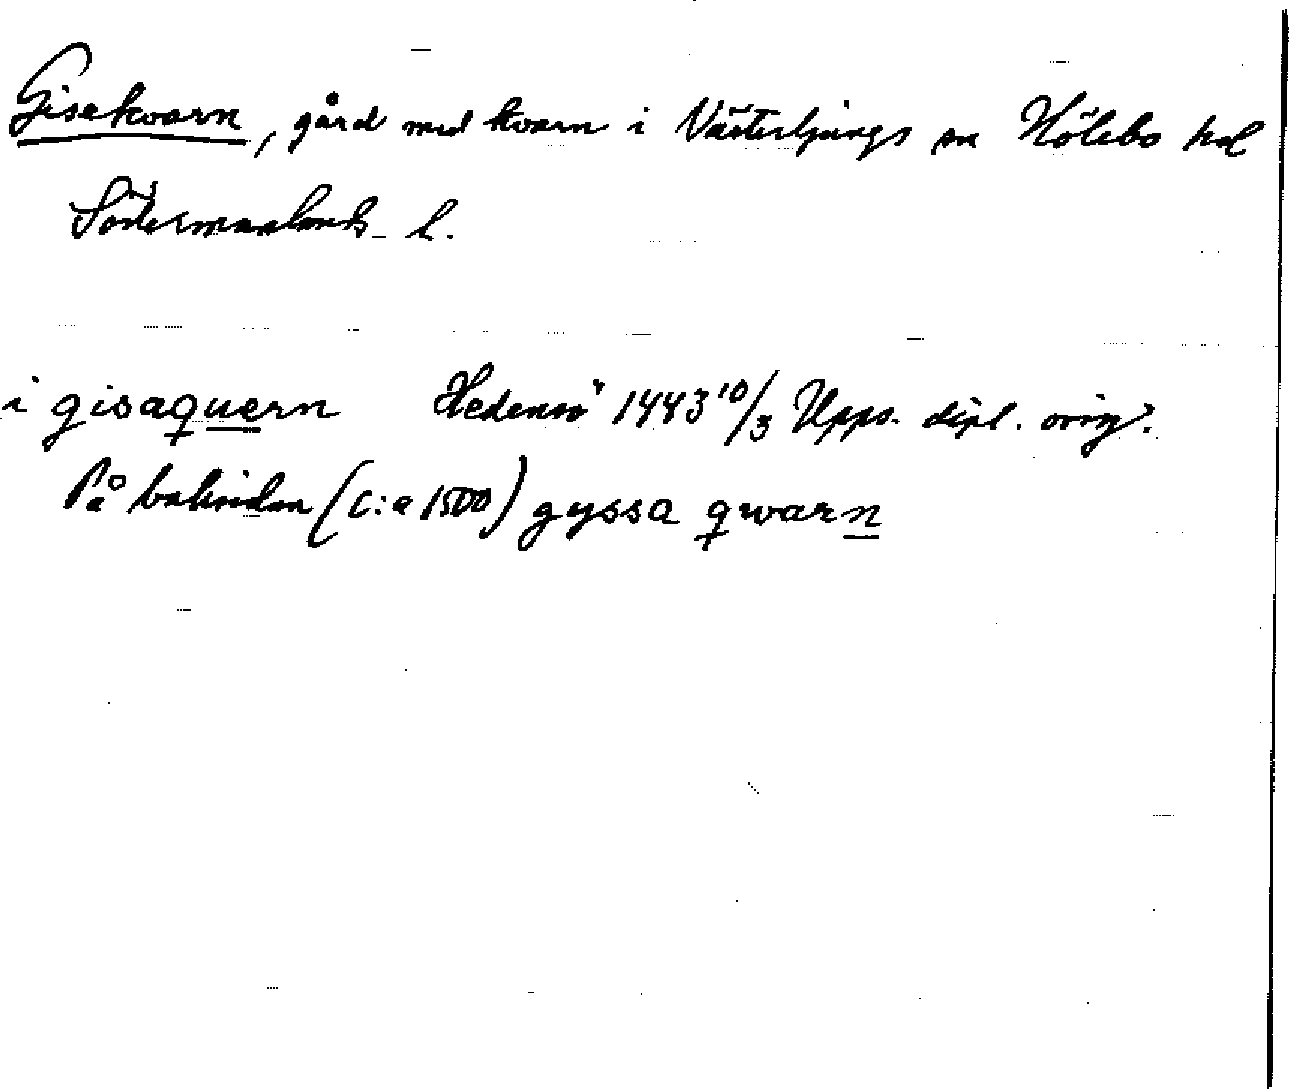 Gisekvarn, gård med kvarn i Västerljungs sn Hölebo hd
Södermanlands l.
i gisaquern Hedensö 1443 10/3 Upps. dipl. orig.
På baksidan (c:a 1500) gyssa qwarn